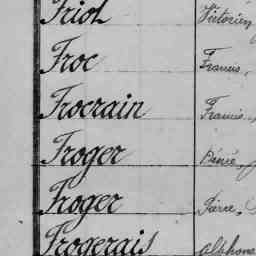 Friol Victorien
Froc Francis,
Frocrain Francis,
Froger
Froger Pierre,
Frogerais Alphonse